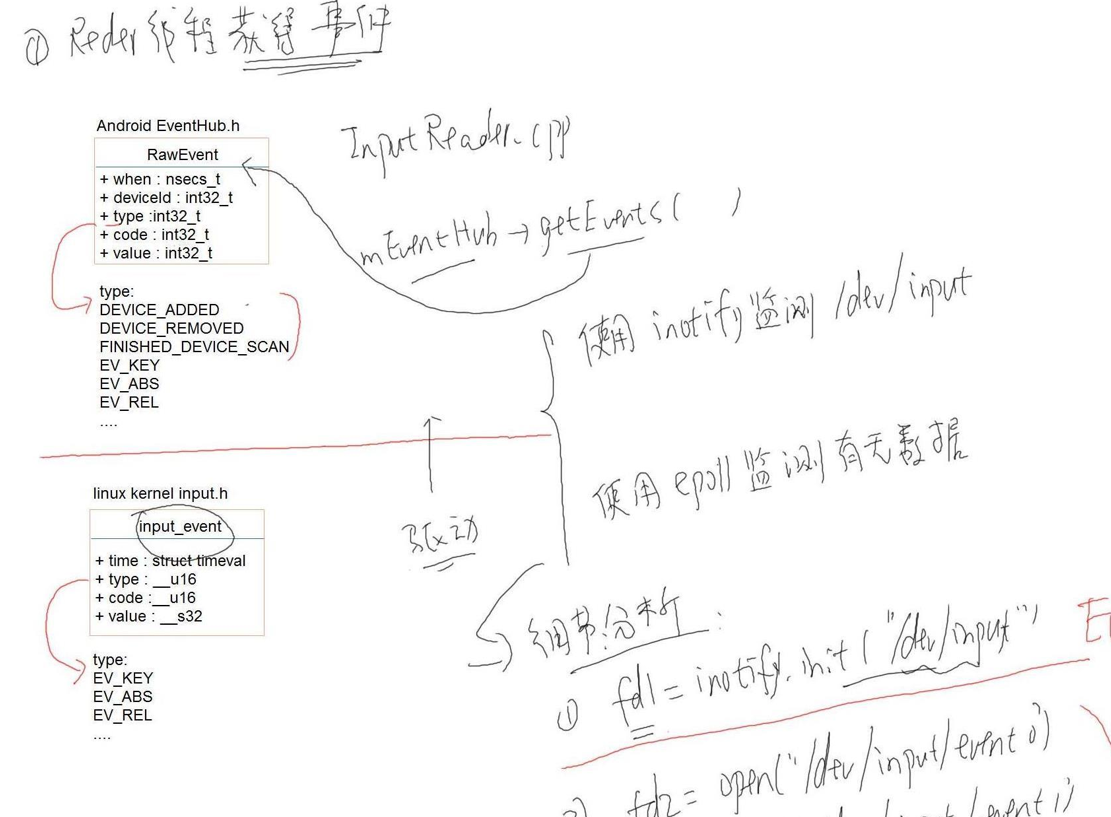 ① Reder线程获得事件
Android EventHub.h
RawEvent
+ when : nsecs_t
+ deviceId : int32_t
+ type :int32_t
+ code : int32_t
+ value : int32_t
type:
DEVICE_ADDED
DEVICE_REMOVED
FINISHED_DEVICE_SCAN
EV_KEY
EV_ABS
EV_REL
....
InputReader.cpp
mEventHub→getEvents( )
使用 inotify监测 /dev/input
使用 epoll 监测有无数据
linux kernel input.h
input_event
+ time : struct timeval
+ type : __u16
+ code : __u16
+ value : __s32
type:
EV_KEY
EV_ABS
EV_REL
....
细节分析:
① fd1 = inotify.init("/dev/input")
fd2= open("/dev/input/event0")
/event1)